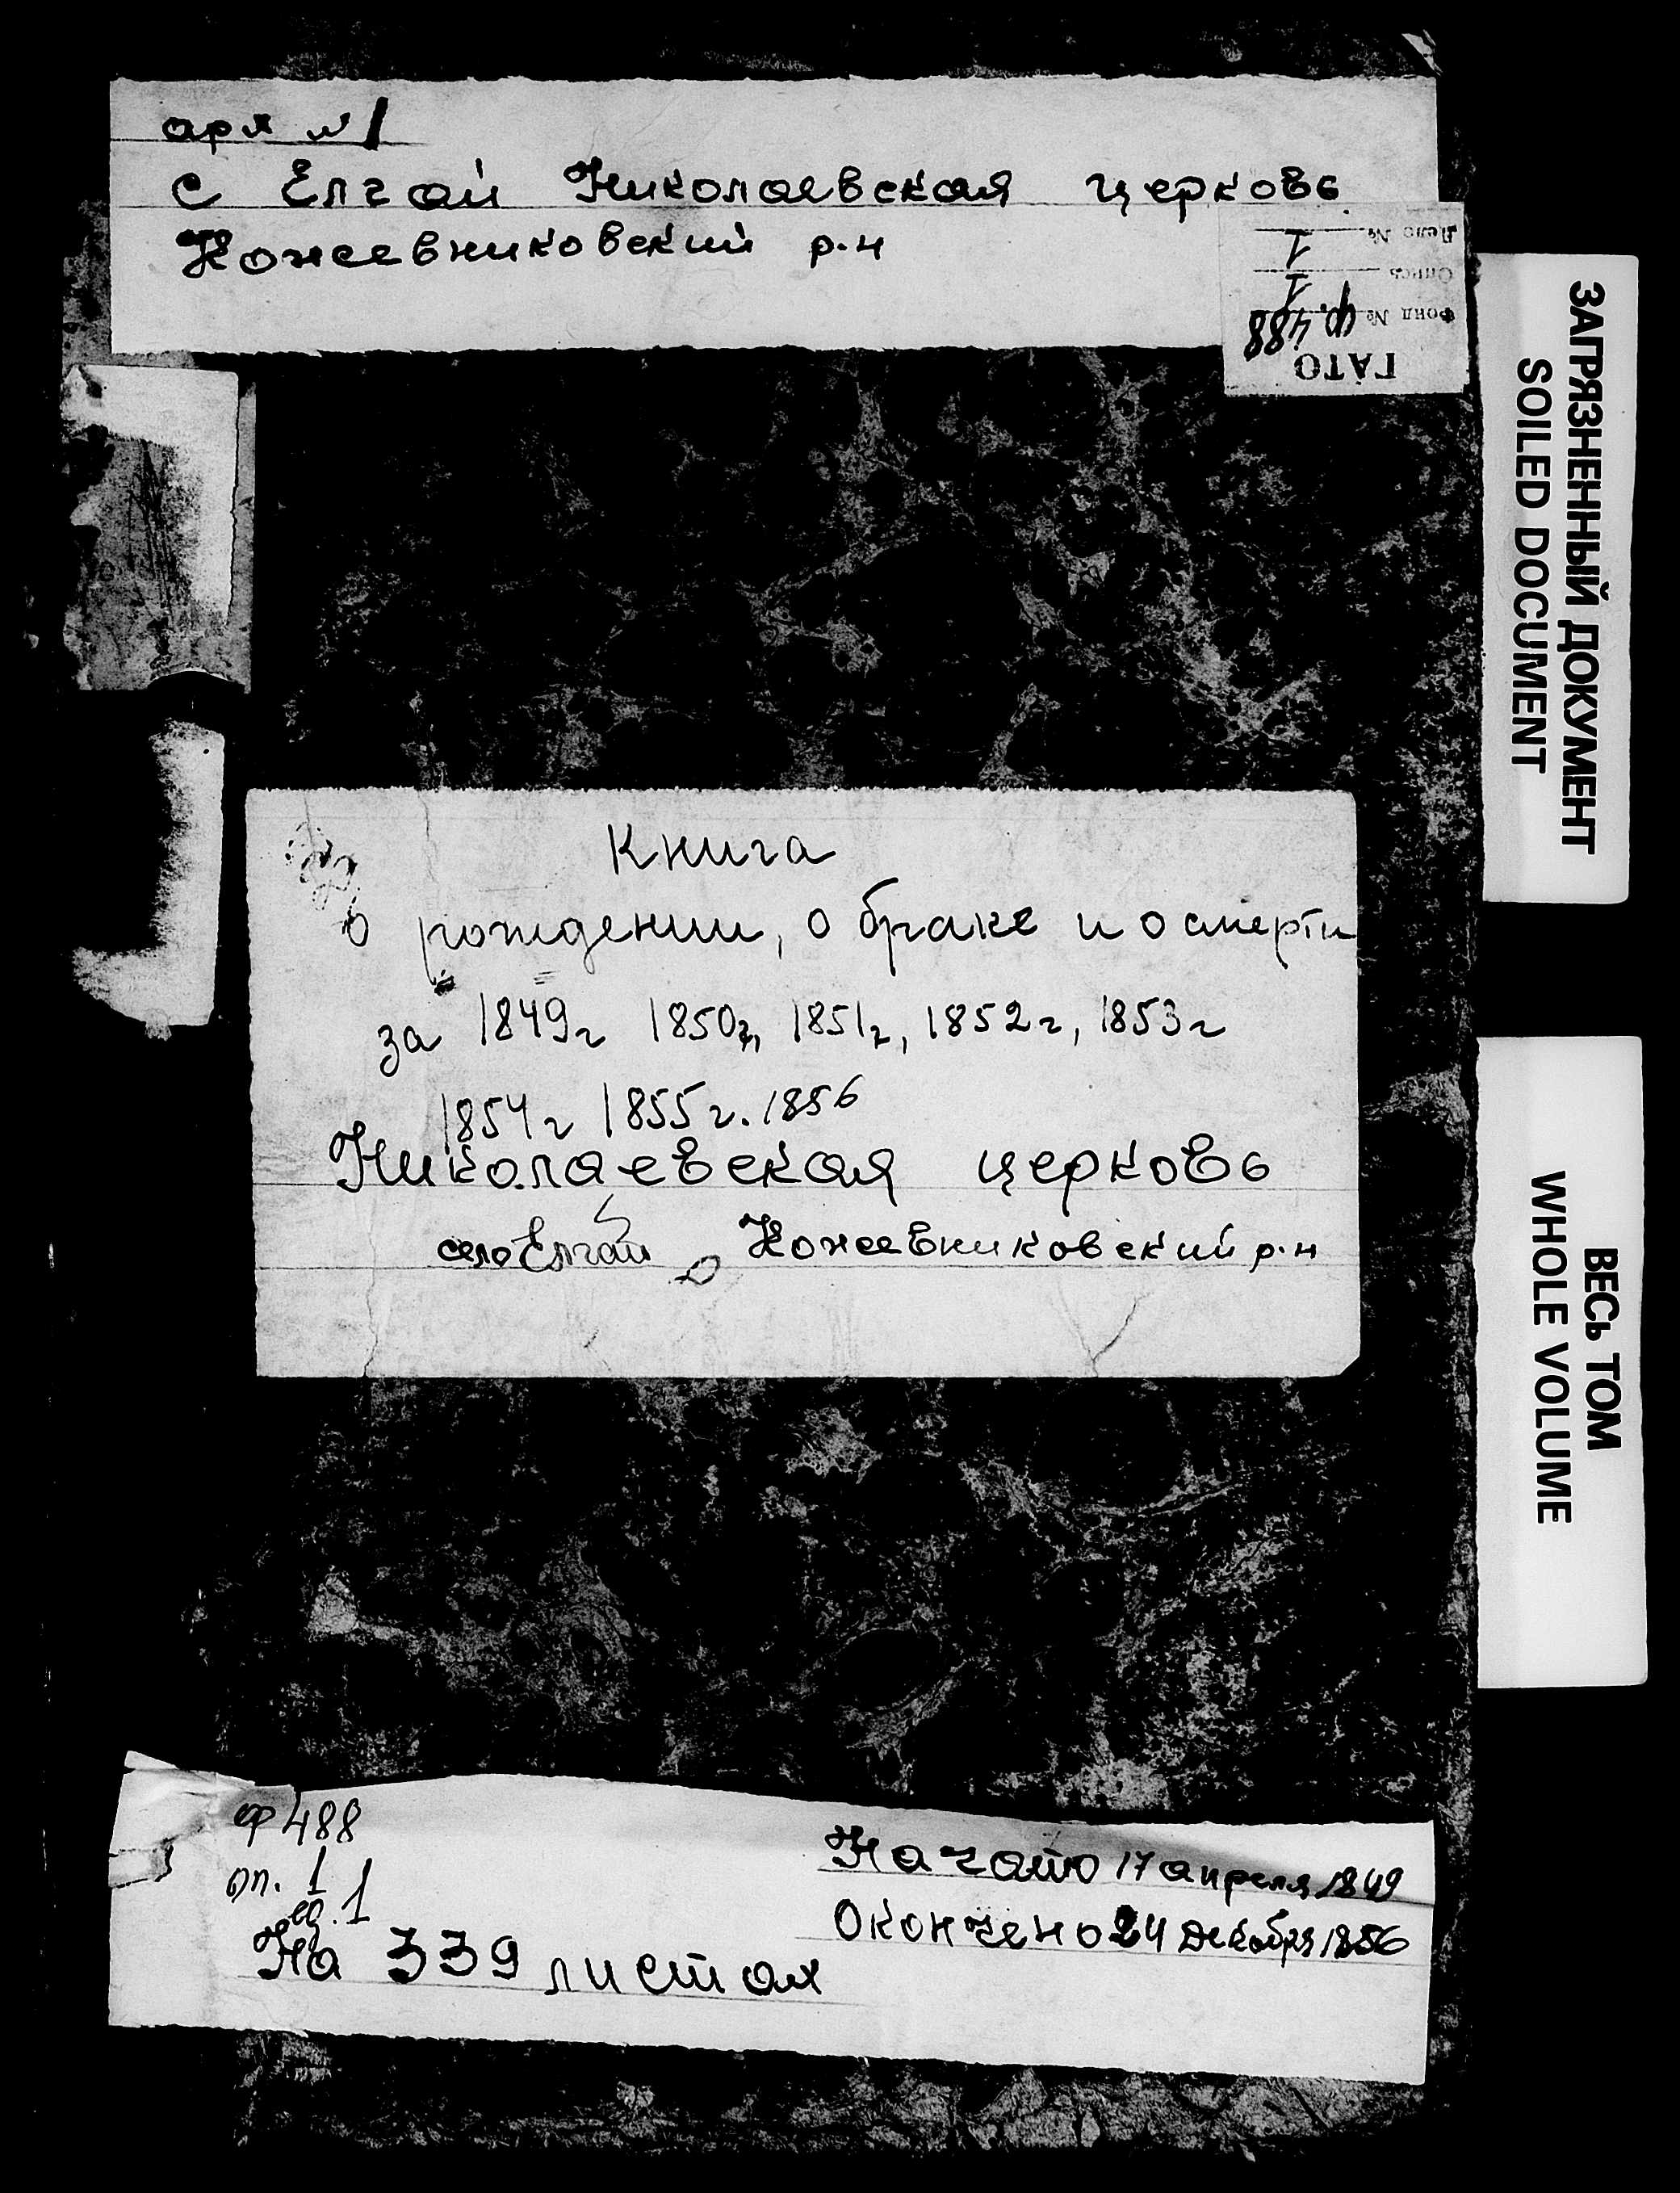 арх № 1
с Елгай Николаевская церковь
Кожевниковский р-н
ГАТО
Фонд № ф. 488
Опись 1
Дело № 1
ЗАГРЯЗНЕННЫЙ ДОКУМЕНТ
SOILED DOCUMENT
Книга
о рождении, о браке и о смерти
за 1849г 1850г, 1851г, 1852г, 1853г
1854г 1855г. 1856
Николаевская церковь
село Елгай Кожевниковский р-н
ВЕСЬ ТОМ
WHOLE VOLUME
ф 488
оп. 1
ед. 1
На 339 листах
Начато 17 апреля 1849
Окончено 24 декабря 1856